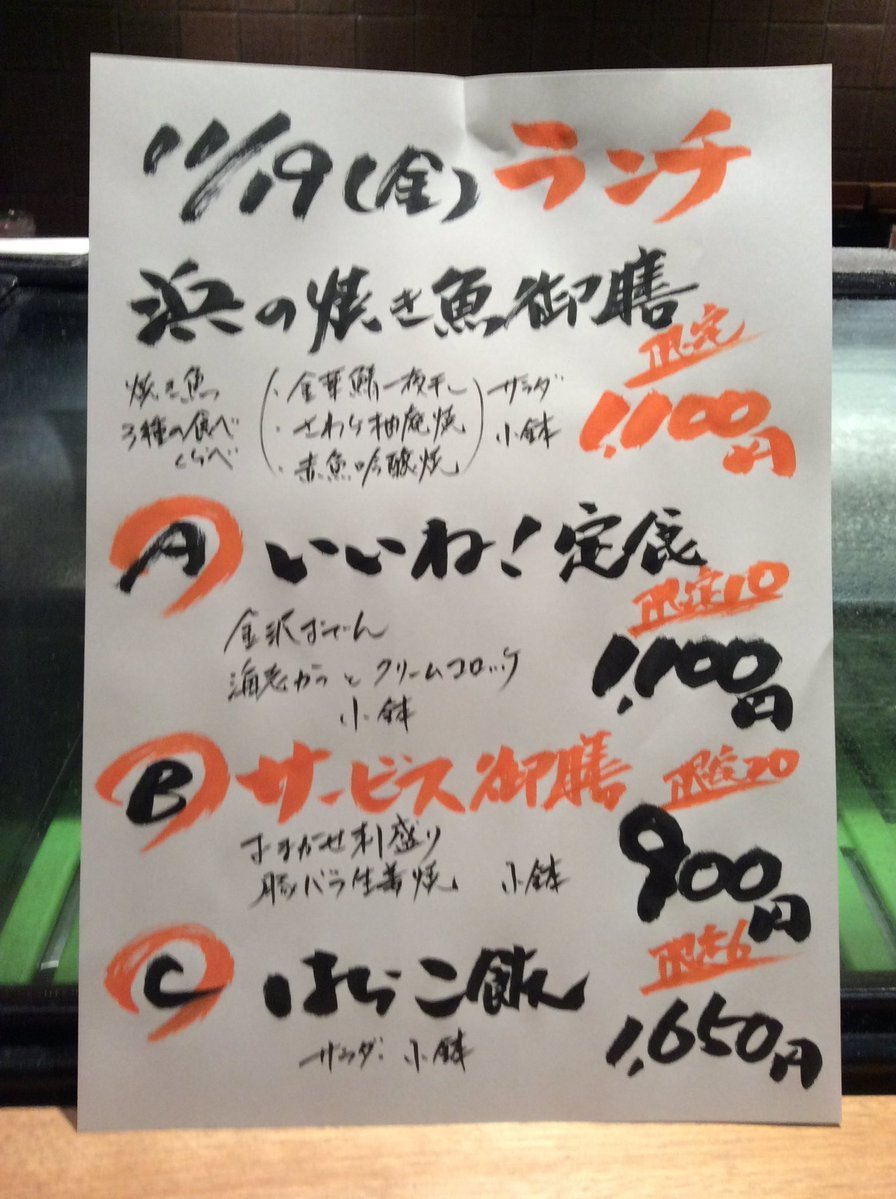 11/19(金)ランチ
浜の焼き魚御膳
限定
1,100円
焼き魚
3種の食べ
くらべ
・金華鯖一夜干し
・さわら柚庵焼
・赤魚吟醸焼
サラダ
小鉢
A いいね!定食
限定10
1,100円
金沢おでん
海老かつとクリームコロッケ
小鉢
B サービス御膳 限定20
900円
おまかせ刺盛り
豚バラ生姜焼 小鉢
C はらこ飯
限定6
1,650円
サラダ・小鉢